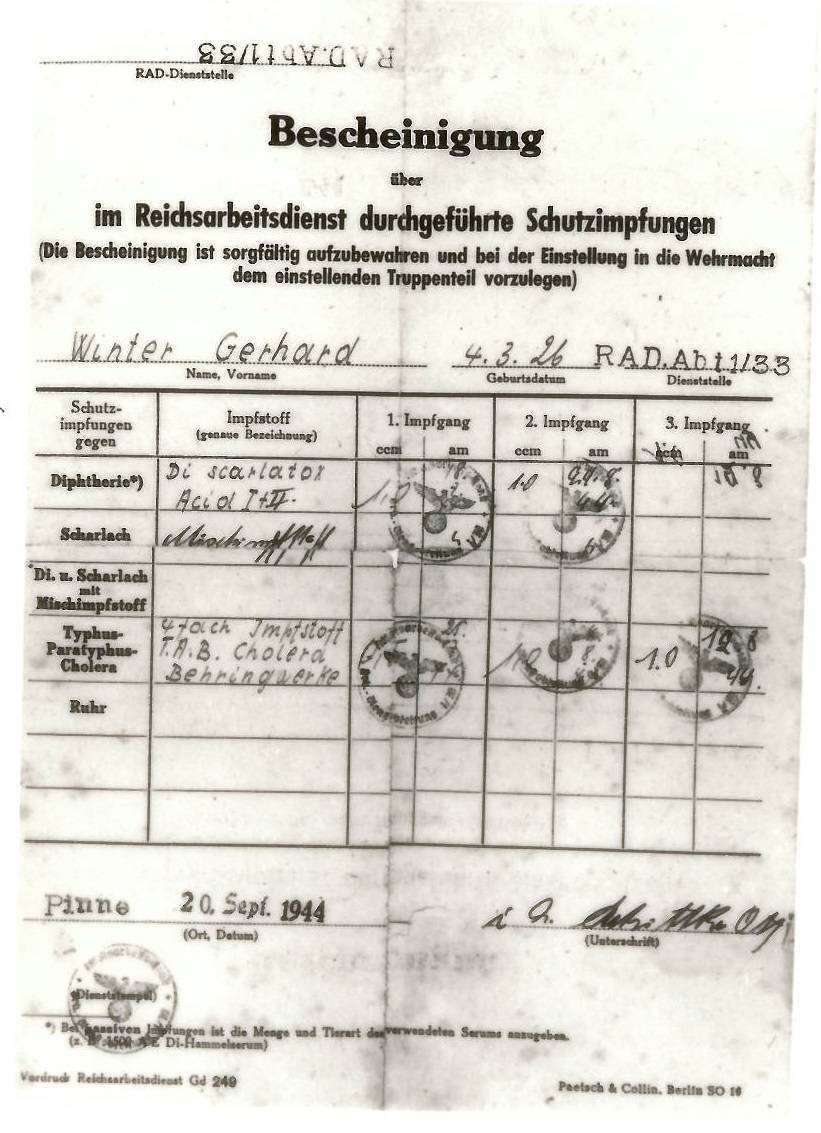 RAD.Abt 1/33
RAD-Dienststelle
Bescheinigung
über
im Reichsarbeitsdienst durchgeführte Schutzimpfungen
(Die Bescheinigung ist sorgfältig aufzubewahren und bei der Einstellung in die Wehrmacht
dem einstellenden Truppenteil vorzulegen)
Winter Gerhard 4.3.26 RAD.Abt.1/33
Name, Vorname Geburtsdatum Dienststelle
Schutz-
impfungen
gegen
Impfstoff
(genaue Bezeichnung)
1. Impfgang 2. Impfgang 3. Impfgang
ccm am ccm am ccm am
Diphtherie*) Di scarlatox 1,0 1.0
Acid I+II.
Scharlach Mischimpfstoff
Di. u. Scharlach
mit
Mischimpfstoff
Typhus-
Paratyphus-
Cholera
4fach Impfstoff
T.A.B. Cholera 1.0 19 8
Behringwerke 44.
Ruhr
Pinne 20. Sept. 1944
(Ort, Datum) (Unterschrift)
(Dienststempel)
*) Bei passiven Impfungen ist die Menge und Tierart des verwendeten Serums anzugeben.
(z. B. 1500 AE Di-Hammelserum)
Vordruck Reichsarbeitsdienst Gd 249
Paetsch & Collin, Berlin SO 16